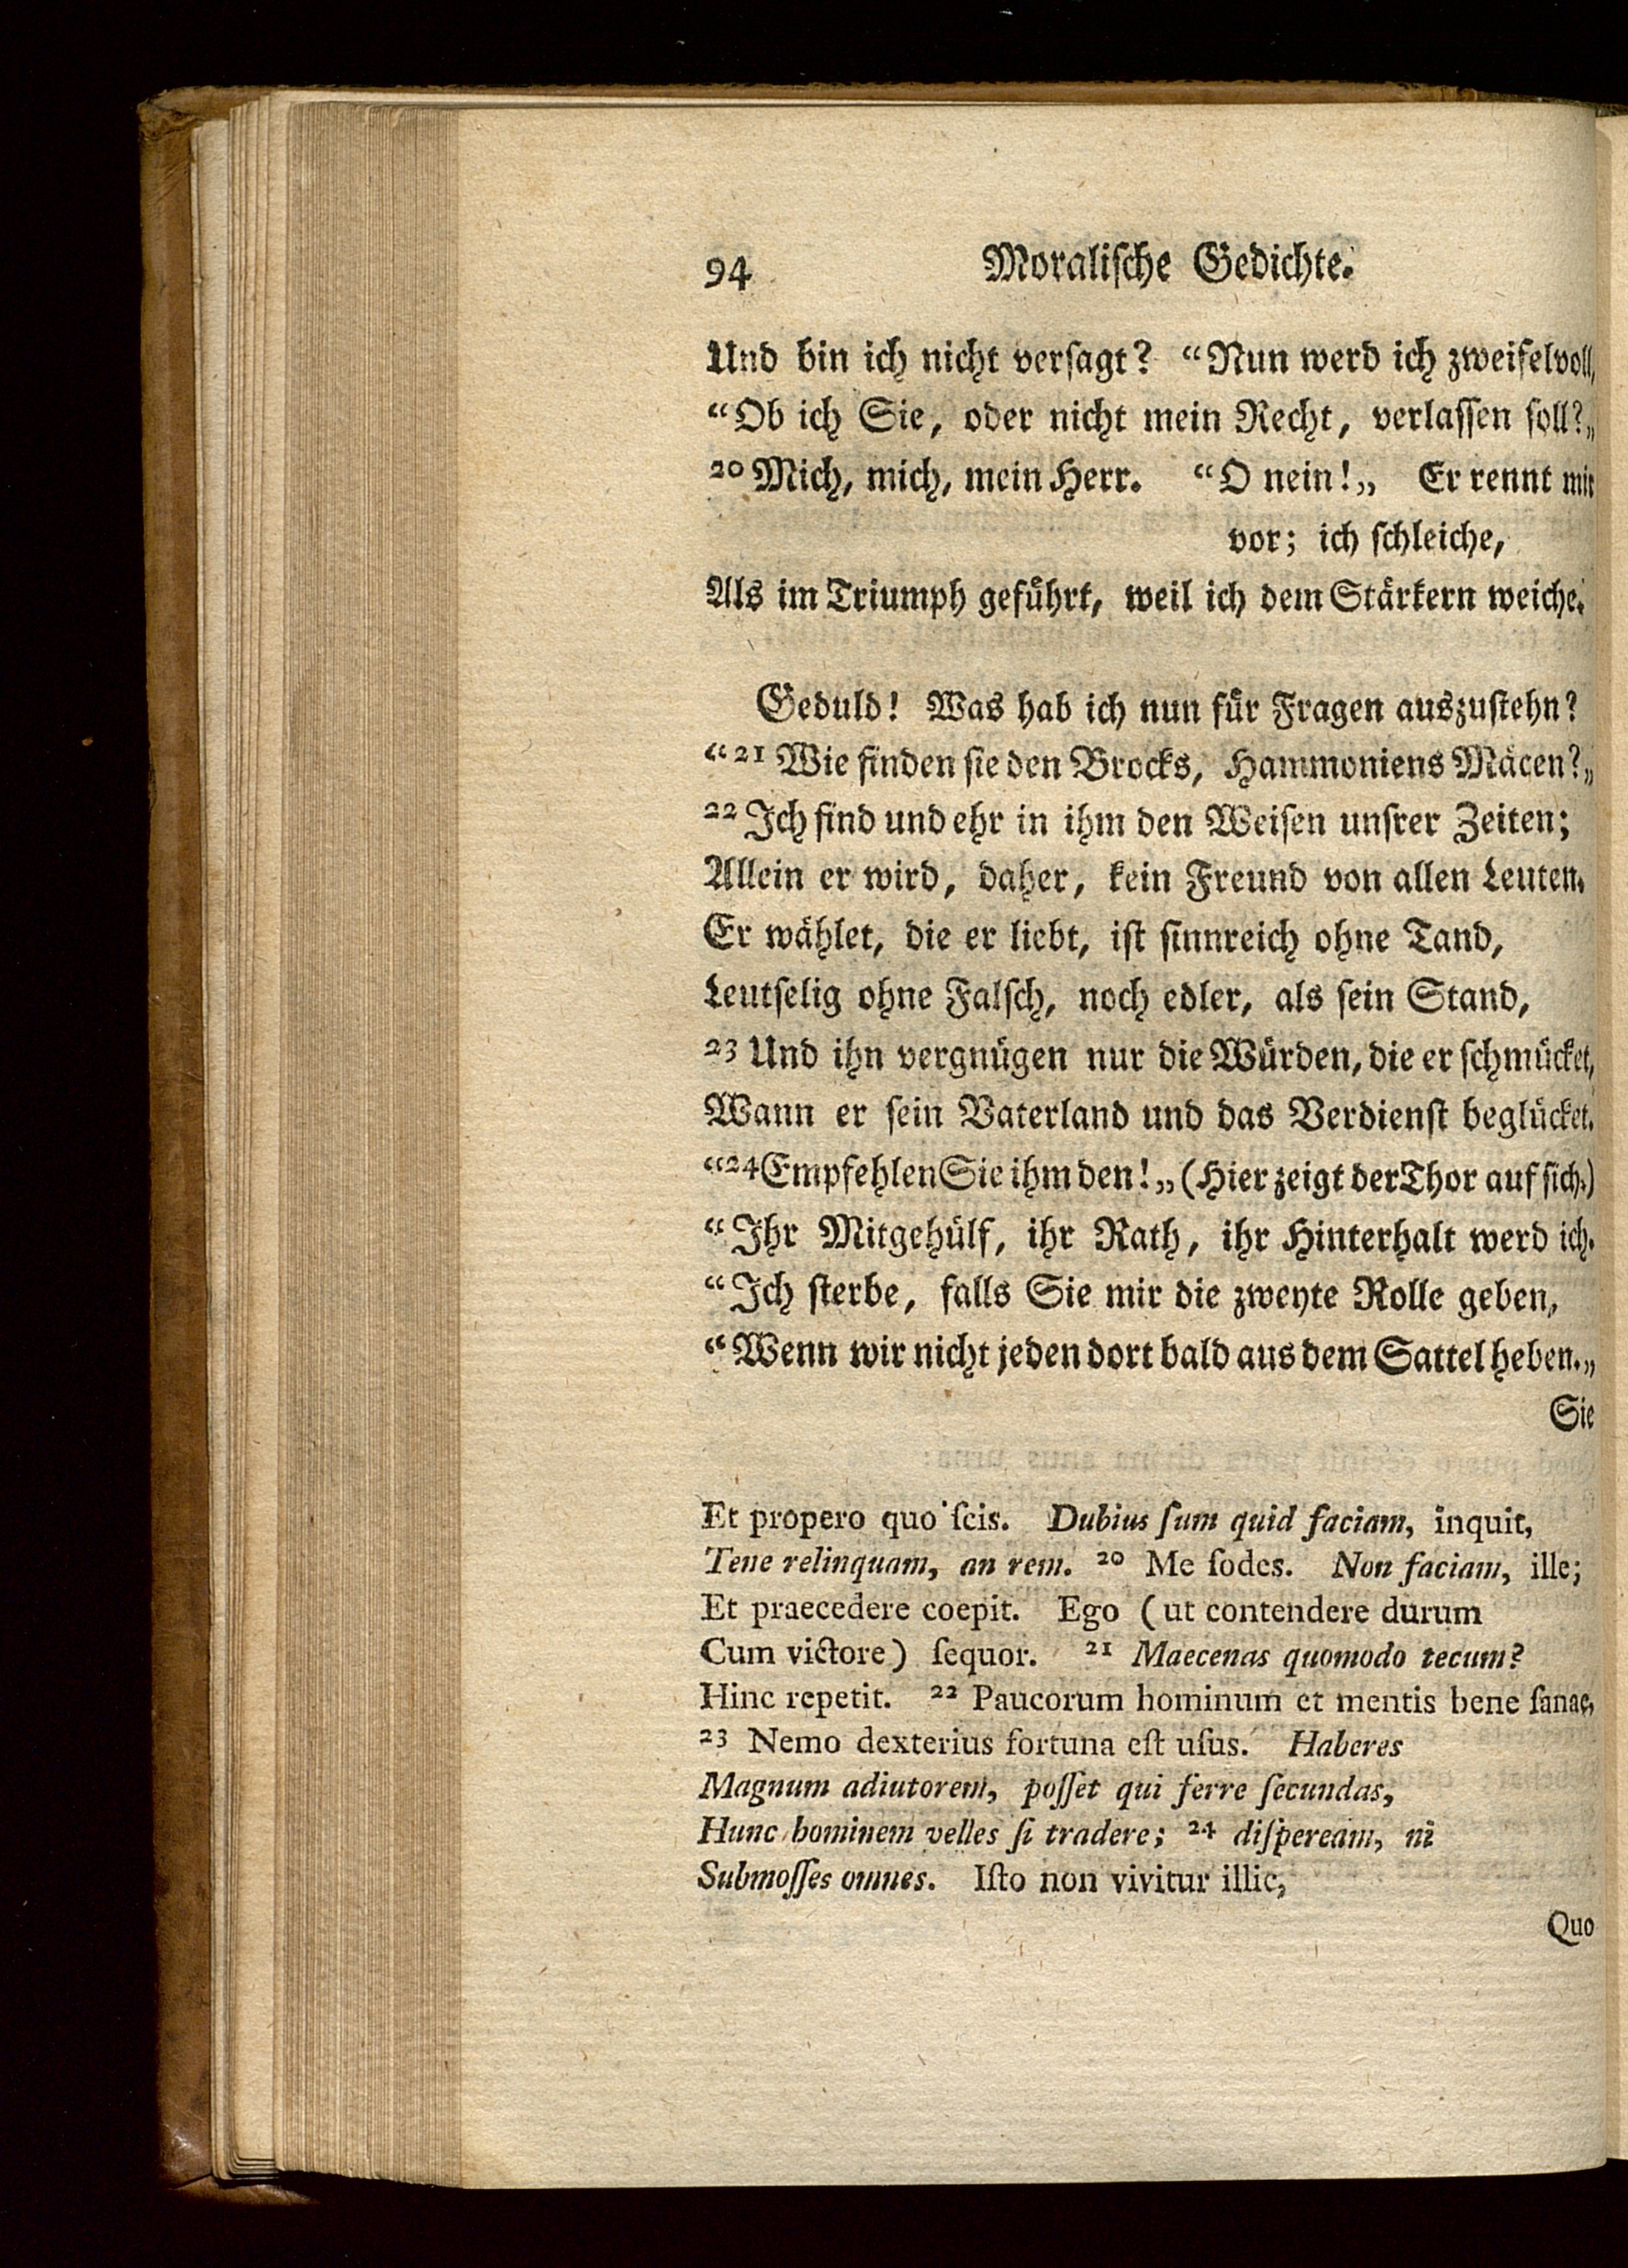 94 Moraliſche Gedichte.
Und bin ich nicht verſagt? “Nun werd ich zweifelvoll,
“Ob ich Sie, oder nicht mein Recht, verlaſſen ſoll?„
²⁰ Mich, mich, mein Herr. “O nein!„ Er rennt mir
vor; ich ſchleiche,
Als im Triumph geführt, weil ich dem Stärkern weiche.
Geduld! Was hab ich nun für Fragen auszuſtehn?
“²¹ Wie finden ſie den Brocks, Hammoniens Mäcen?„
²² Ich find und ehr in ihm den Weiſen unſrer Zeiten;
Allein er wird, daher, kein Freund von allen Leuten.
Er wählet, die er liebt, iſt ſinnreich ohne Tand,
Leutſelig ohne Falſch, noch edler, als ſein Stand,
²³ Und ihn vergnügen nur die Würden, die er ſchmücket,
Wann er ſein Vaterland und das Verdienſt beglücket.
“²⁴ Empfehlen Sie ihm den!„ (Hier zeigt der Thor auf ſich.)
“Ihr Mitgehülf, ihr Rath, ihr Hinterhalt werd ich.
“Ich ſterbe, falls Sie mir die zweyte Rolle geben,
“Wenn wir nicht jeden dort bald aus dem Sattel heben.„
Sie
Et propero quo ſcis. Dubius ſum quid faciam, inquit,
Tene relinquam, an rem. ²⁰ Me ſodes. Non faciam, ille;
Et praecedere coepit. Ego (ut contendere durum
Cum victore) ſequor. ²¹ Maecenas quomodo tecum?
Hinc repetit. ²² Paucorum hominum et mentis bene ſanae,
²³ Nemo dexterius fortuna eſt uſus. Haberes
Magnum adiutorem, poſſet qui ferre ſecundas,
Hunc hominem velles ſi tradere; ²⁴ diſpeream, ni
Submoſſes omnes. Iſto non vivitur illic,
Quo